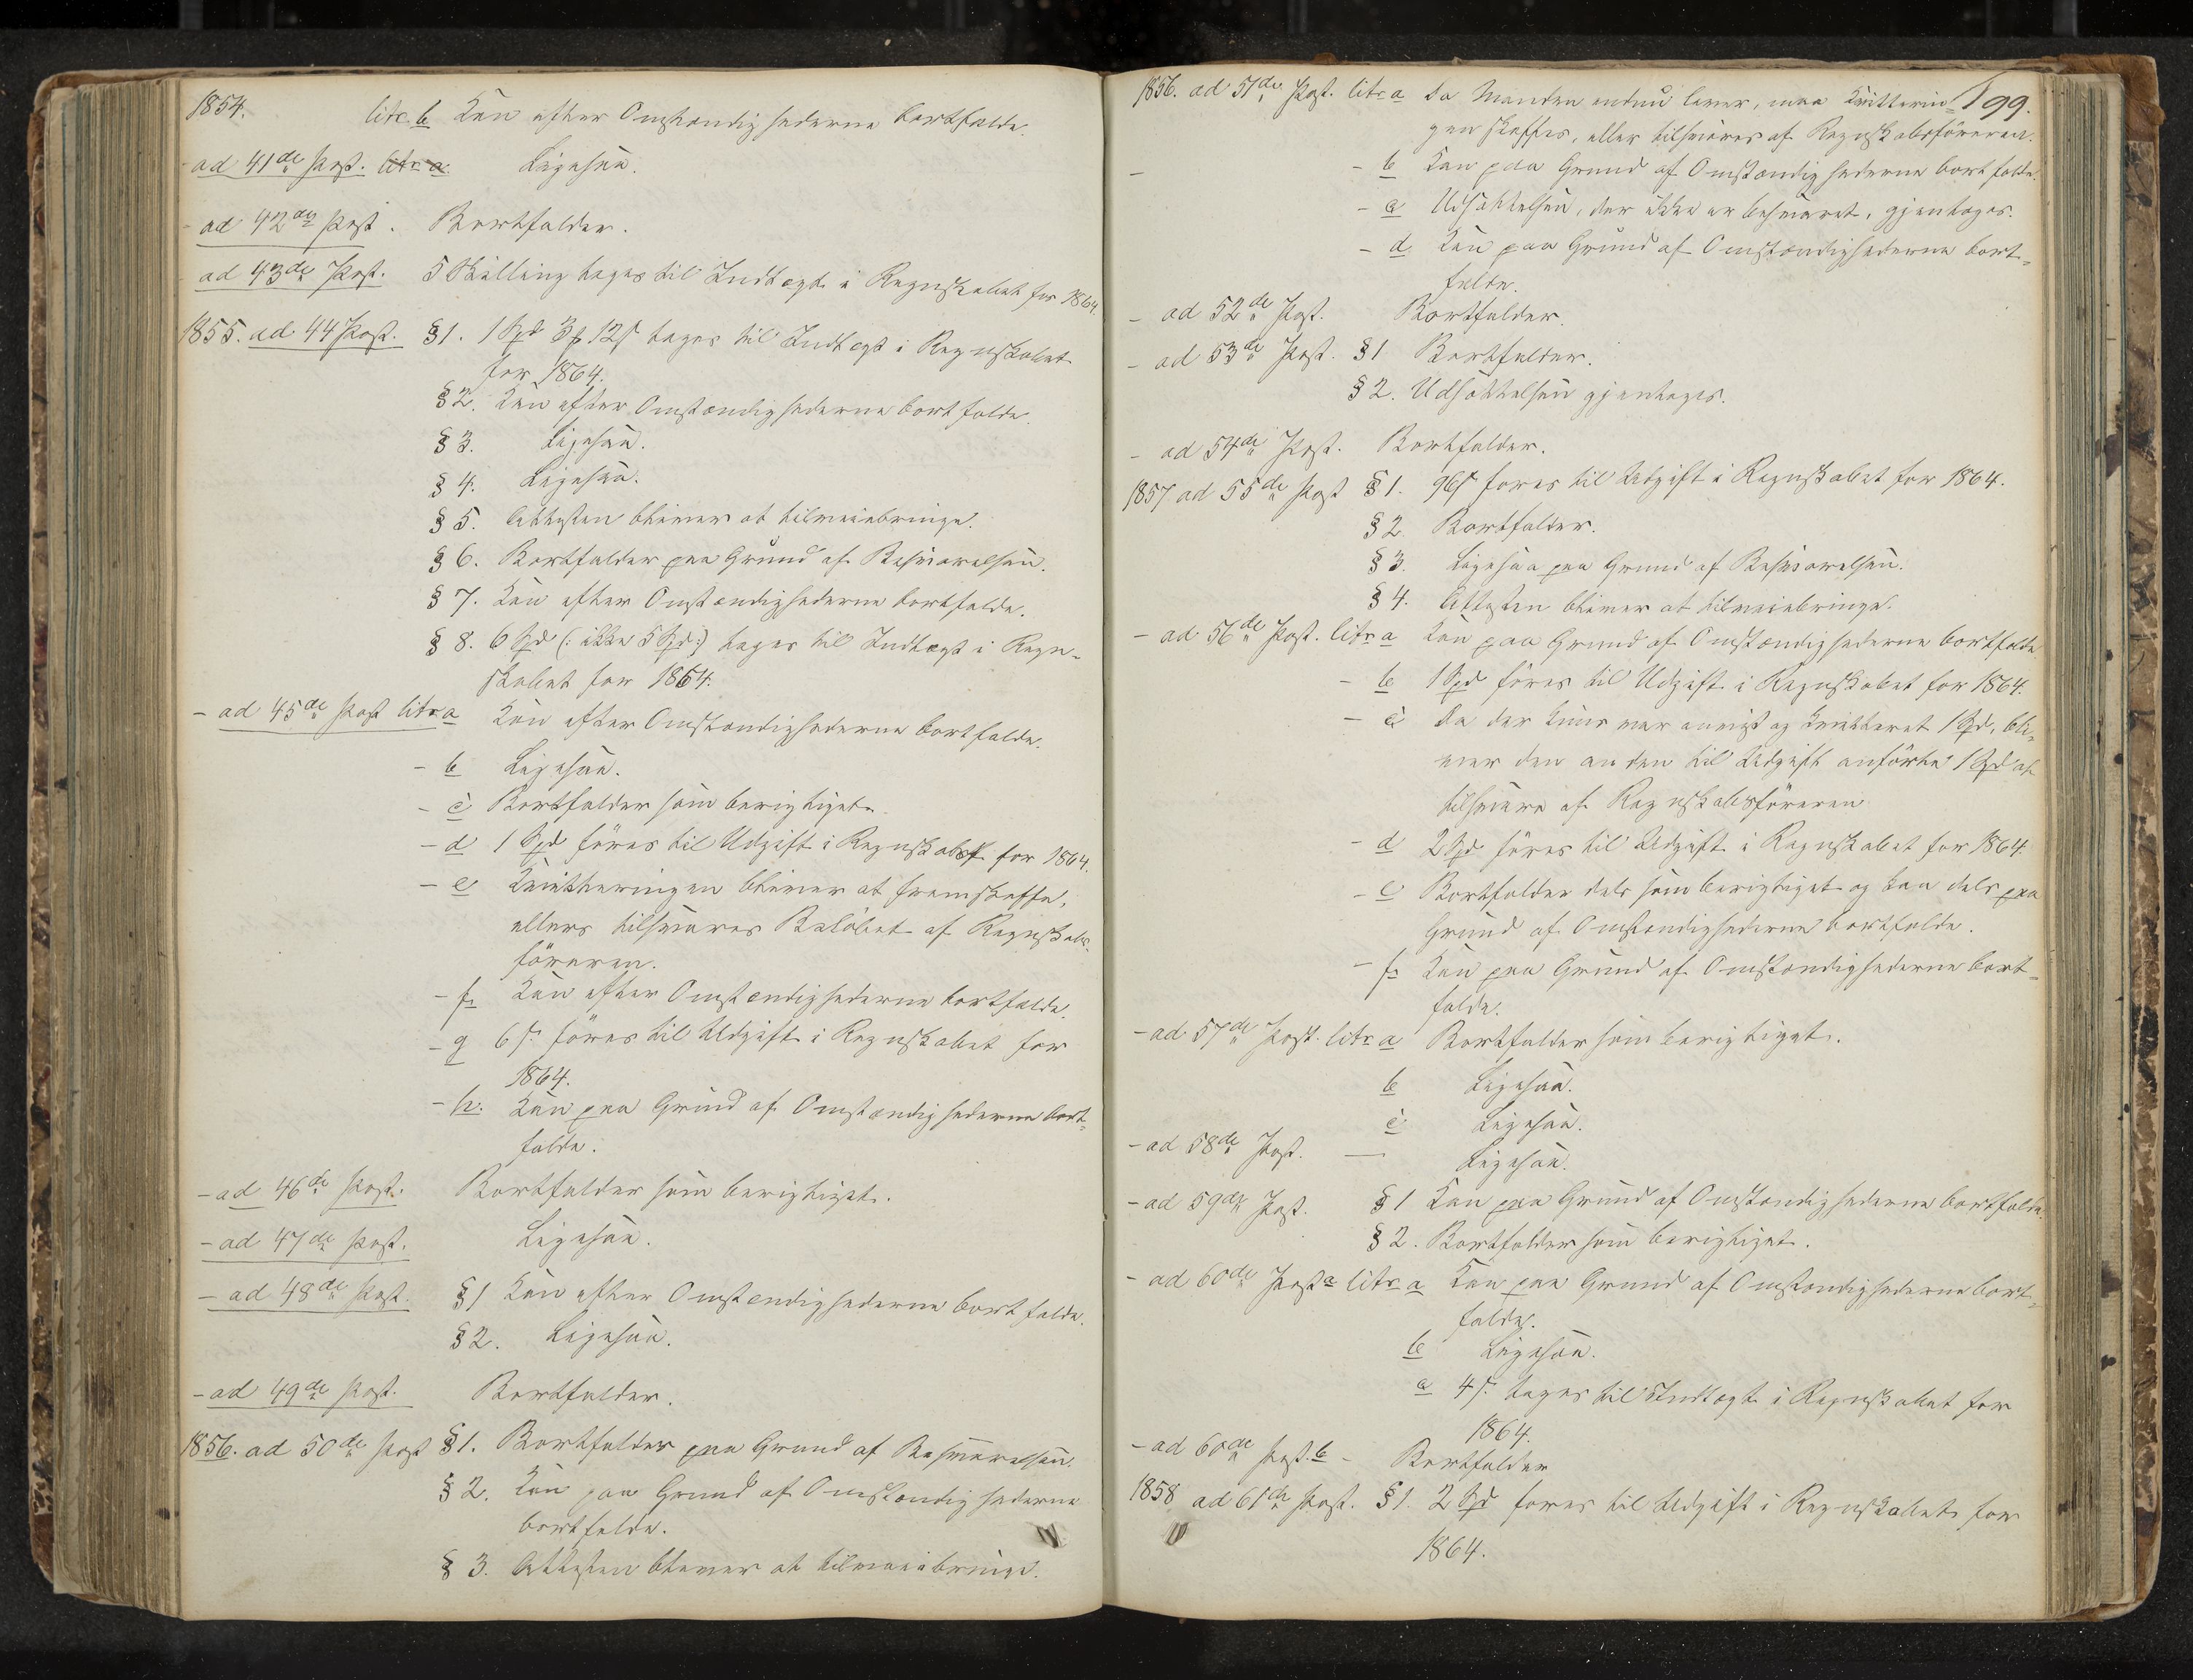 1854.
litr. b Kan efter Omstændighederne bortfalde.
- ad 41de Post. litr a. Ligesaa.
- ad 42de Post. Bortfalder.
ad 43de Post. 5 Skilling tages til Indtægt i Regnskabet for 1864.
1855. ad 44 Post. §1. 1 Spd 3 12 s tages til Indtægt i Regnskabet
for 1864.
§2. Kan efter Omstændighederne bortfalde.
§3. Ligesaa.
§4. Ligesaa.
§5. Attesten bliver at tilveiebringe.
§6. Bortfalder paa Grund af Besvarelsen.
§7. Kan efter Omstændighederne bortfalde.
§8. 6 Spd (: ikke 5 Spd :) tages til Indtægt i Regn-
skabet for 1864.
- ad 45de Post litr a Kan efter Omstændighederne bortfalde.
- b Ligesaa.
- c Bortfalder som berigtiget.
- d 1 Spd föres til Udgift i Regnskabet for 1864.
- e Kvitteringen bliver at fremskaffe,
ellers tilsvares Belöbet af Regnskabs-
föreren.
- f. Kan efter Omstændighederne bortfalde.
- g 6 s. föres til Udgift i Regnskabet for
1864.
- h. Kan paa Grund af Omstændighederne bort-
falde.
- ad 46de Post. Bortfalder som berigtiget.
- ad 47de Post. Ligesaa.
- ad 48de Post. §1 Kan efter Omstændighederne bortfalde.
§2. Ligesaa.
- ad 49de Post. Bortfalder.
1856. ad 50de Post §1. Bortfalder paa Grund af Besvarelsen.
§2. Kan paa Grund af Omstændighederne
bortfalde.
§3. Attesten bliver at tilveiebringe.
199.
1856. ad 51de Post. litr a Da Manden endnu lever, maa Kvitterin-
gen skaffes, eller tilsvares af Regnskabsföreren.
- - b Kan paa Grund af Omstændighederne bortfalde.
- c Udsættelsen, der ikke er besvaret, gjentages.
- d Kan paa Grund af Omstændighederne bort-
falde.
- ad 52de Post. Bortfalder.
- ad 53de Post. §1 Bortfalder.
§2. Udsættelsen gjentages.
- ad 54de Post. Bortfalder.
1857 ad 55de Post §1. 96 s föres til Udgift i Regnskabet for 1864.
§2. Bortfalder.
§3. Ligesaa paa Grund af Besvarelsen.
§4. Attesten bliver at tilveiebringe.
- ad 56de Post. litr a Kan paa Grund af Omstændighederne bortfalde.
- b 1 Spd föres til Udgift i Regnskabet for 1864.
- c Da der kuns var anvist og kvitteret 1 Spd, bli-
ver den anden til Udgift anförte 1 Spd at
tilsvare af Regnskabsföreren
- d 2 Spd föres til Udgift i Regnskabet for 1864.
- e Bortfalder dels som berigtiget og kan dels paa
Grund af Omstændighederne bortfalde.
- f. Kan paa Grund af Omstændighederne bort-
falde.
- ad 57de Post. litr a Bortfalder som berigtiget.
b Ligesaa.
c Ligesaa.
- ad 58de Post. — Ligesaa.
- ad 59de Post. §1 Kan paa Grund af Omstændighederne bortfalde.
§2. Bortfalder som berigtiget.
- ad 60de Post a litr a Kan paa Grund af Omstændighederne bort-
falde.
b Ligesaa.
c 4 s. tages til Indtægt i Regnskabet for
1864.
- ad 60de Post. b - Bortfalder
1858 ad 61de Post. §1. 2 Spd föres til Udgift i Regnskabet for
1864.